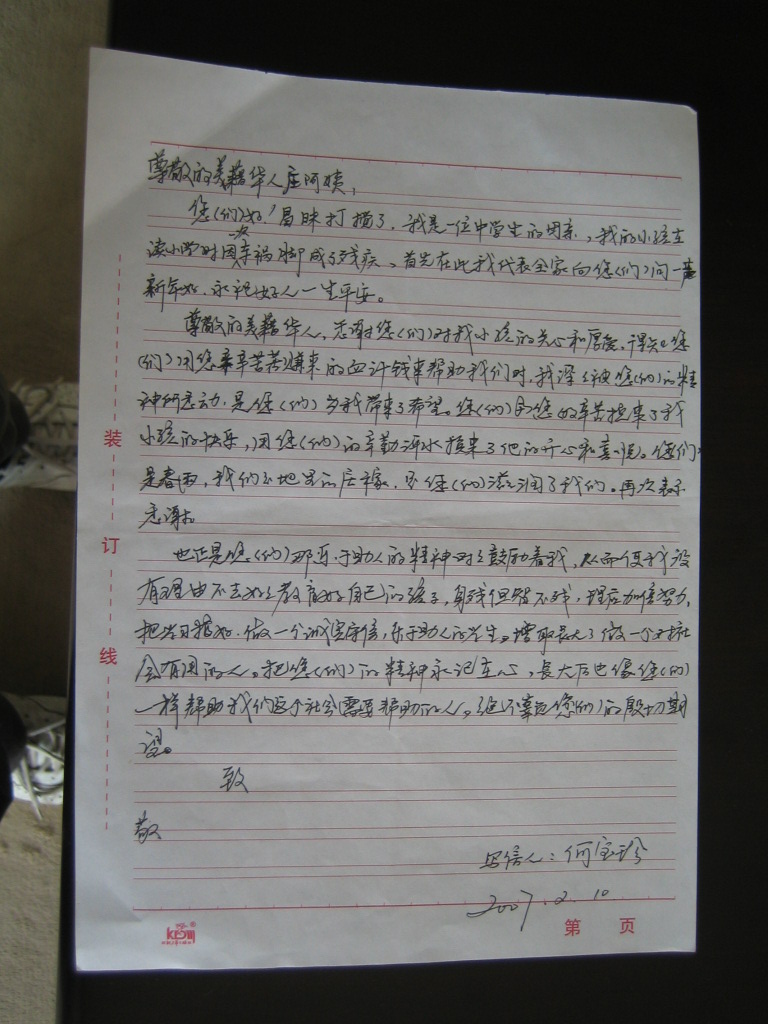 尊敬的美藉华人庄阿姨:
您(们)好!冒昧打搅了,我是一位中学生的母亲,我的小孩在
读小学时因车祸脚成了残疾、首先在此我代表全家向您(们)问一声
新年好,永祝好人一生平安。
尊敬的美藉华人,感谢您(们)对我小孩的关心和厚爱,得知您
(们)用您辛辛苦苦赚来的血汗钱来帮助我们时,我深深被您(们)的精
神所感动,是您(们)为我带来了希望。您(们)用您的辛苦换来了我
小孩的快乐,用您(们)的辛勤汗水换来了他的开心和喜悦。您们
是春雨,我们是地里的庄稼,是您(们)滋润了我们。再次表示
感谢。
也正是您(们)那乐于助人的精神时时鼓励着我,从而使我没
有理由不去好好教育好自己的孩子,身残但智不残,理应加倍努力,
把学习搞好,做一个诚实守信,乐于助人的学生。争取长大了做一个对社
会有用的人。把您(们)的精神永记在心,长大后也像您(们)
一样帮助我们这个社会需要帮助的人,绝不辜负您(们)的殷切期
望。
致
敬
写信人:何宝珍
2007.2.10
装
订
线
第 页